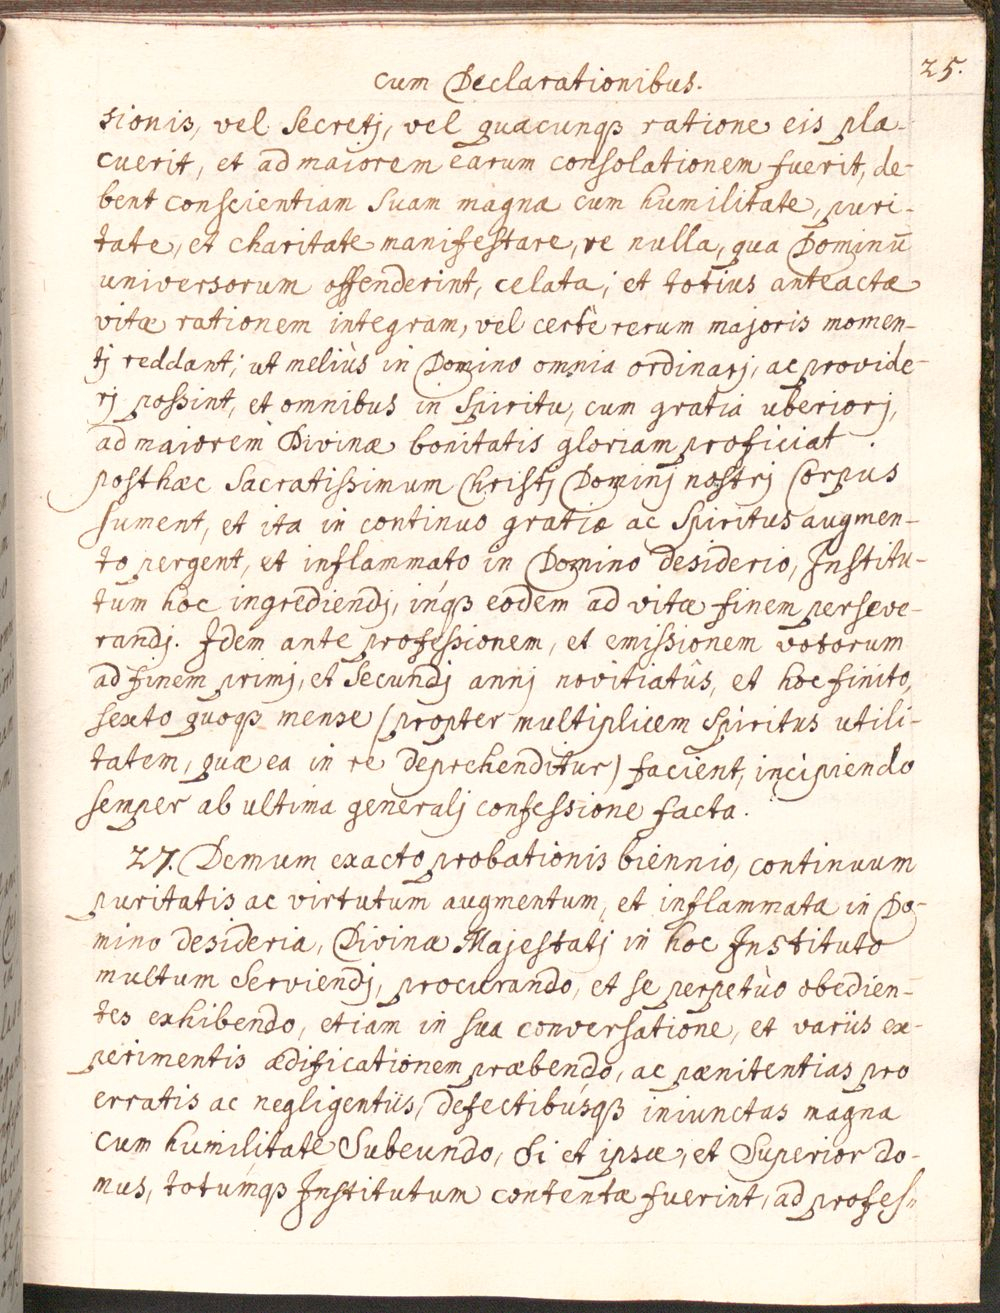 cum Declarationibus.
25.
sionis, vel Secretj, vel quacunqȝ ratione eis pla-
cuerit, et ad maiorem earum consolationem fuerit, de-
bent conscientiam suam magna cum humilitate, puri-
tate, et charitate manifestare, re nulla, qua Dominū
universorum offenderint, celata; et totius anteactæ
vitæ rationem integram, vel certè rerum majoris momen-
tj reddant; ut meliùs in Domino omnia ordinarj, ac provide-
rj possint, et omnibus in Spiritu, cum gratia uberiorj,
ad maiorem Divinæ bonitatis gloriam proficiat.
posthac Sacratissimum Christj Dominj nostrj Corpus
sument, et ita in continuo gratiæ ac Spiritus augmen-
to pergent, et inflammato in Domino desiderio, Institu-
tum hoc ingrediendj, inqȝ eodem ad vitæ finem perseve-
randj. Idem ante professionem, et emissionem votorum
ad finem primj, et Secundj annj novitiatûs, et hoc finito,
sexto quoqȝ mense (propter multiplicem Spiritus utili-
tatem, quæ ea in re deprehenditur) facient, incipiendo
semper ab ultima generalj confessione facta.
27. Demum exacto probationis biennio, continuum
puritatis ac virtutum augmentum, et inflammata in Do-
mino desideria, Divinæ Majestatj in hoc Instituto
multum Serviendj, procurando, et se perpetùo obedien-
tes exhibendo, etiam in sua conversatione, et variis ex-
perimentis ædificationem præbendo, ac pænitentias pro
erratis ac negligentiis, defectibúsqȝ iniunctas magna
cum humilitate Subeundo, Si et ipsæ, et Superior do-
mus, totúmqȝ Institutum contentæ fuerint, ad profes=